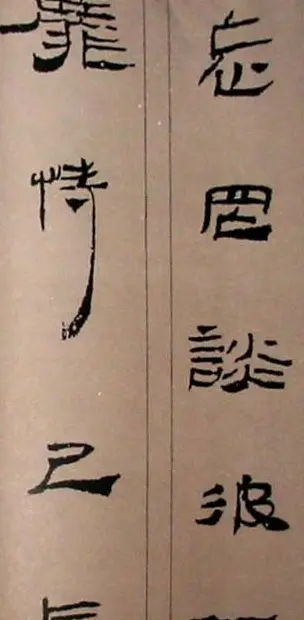 忘罔談彼
靡恃己長